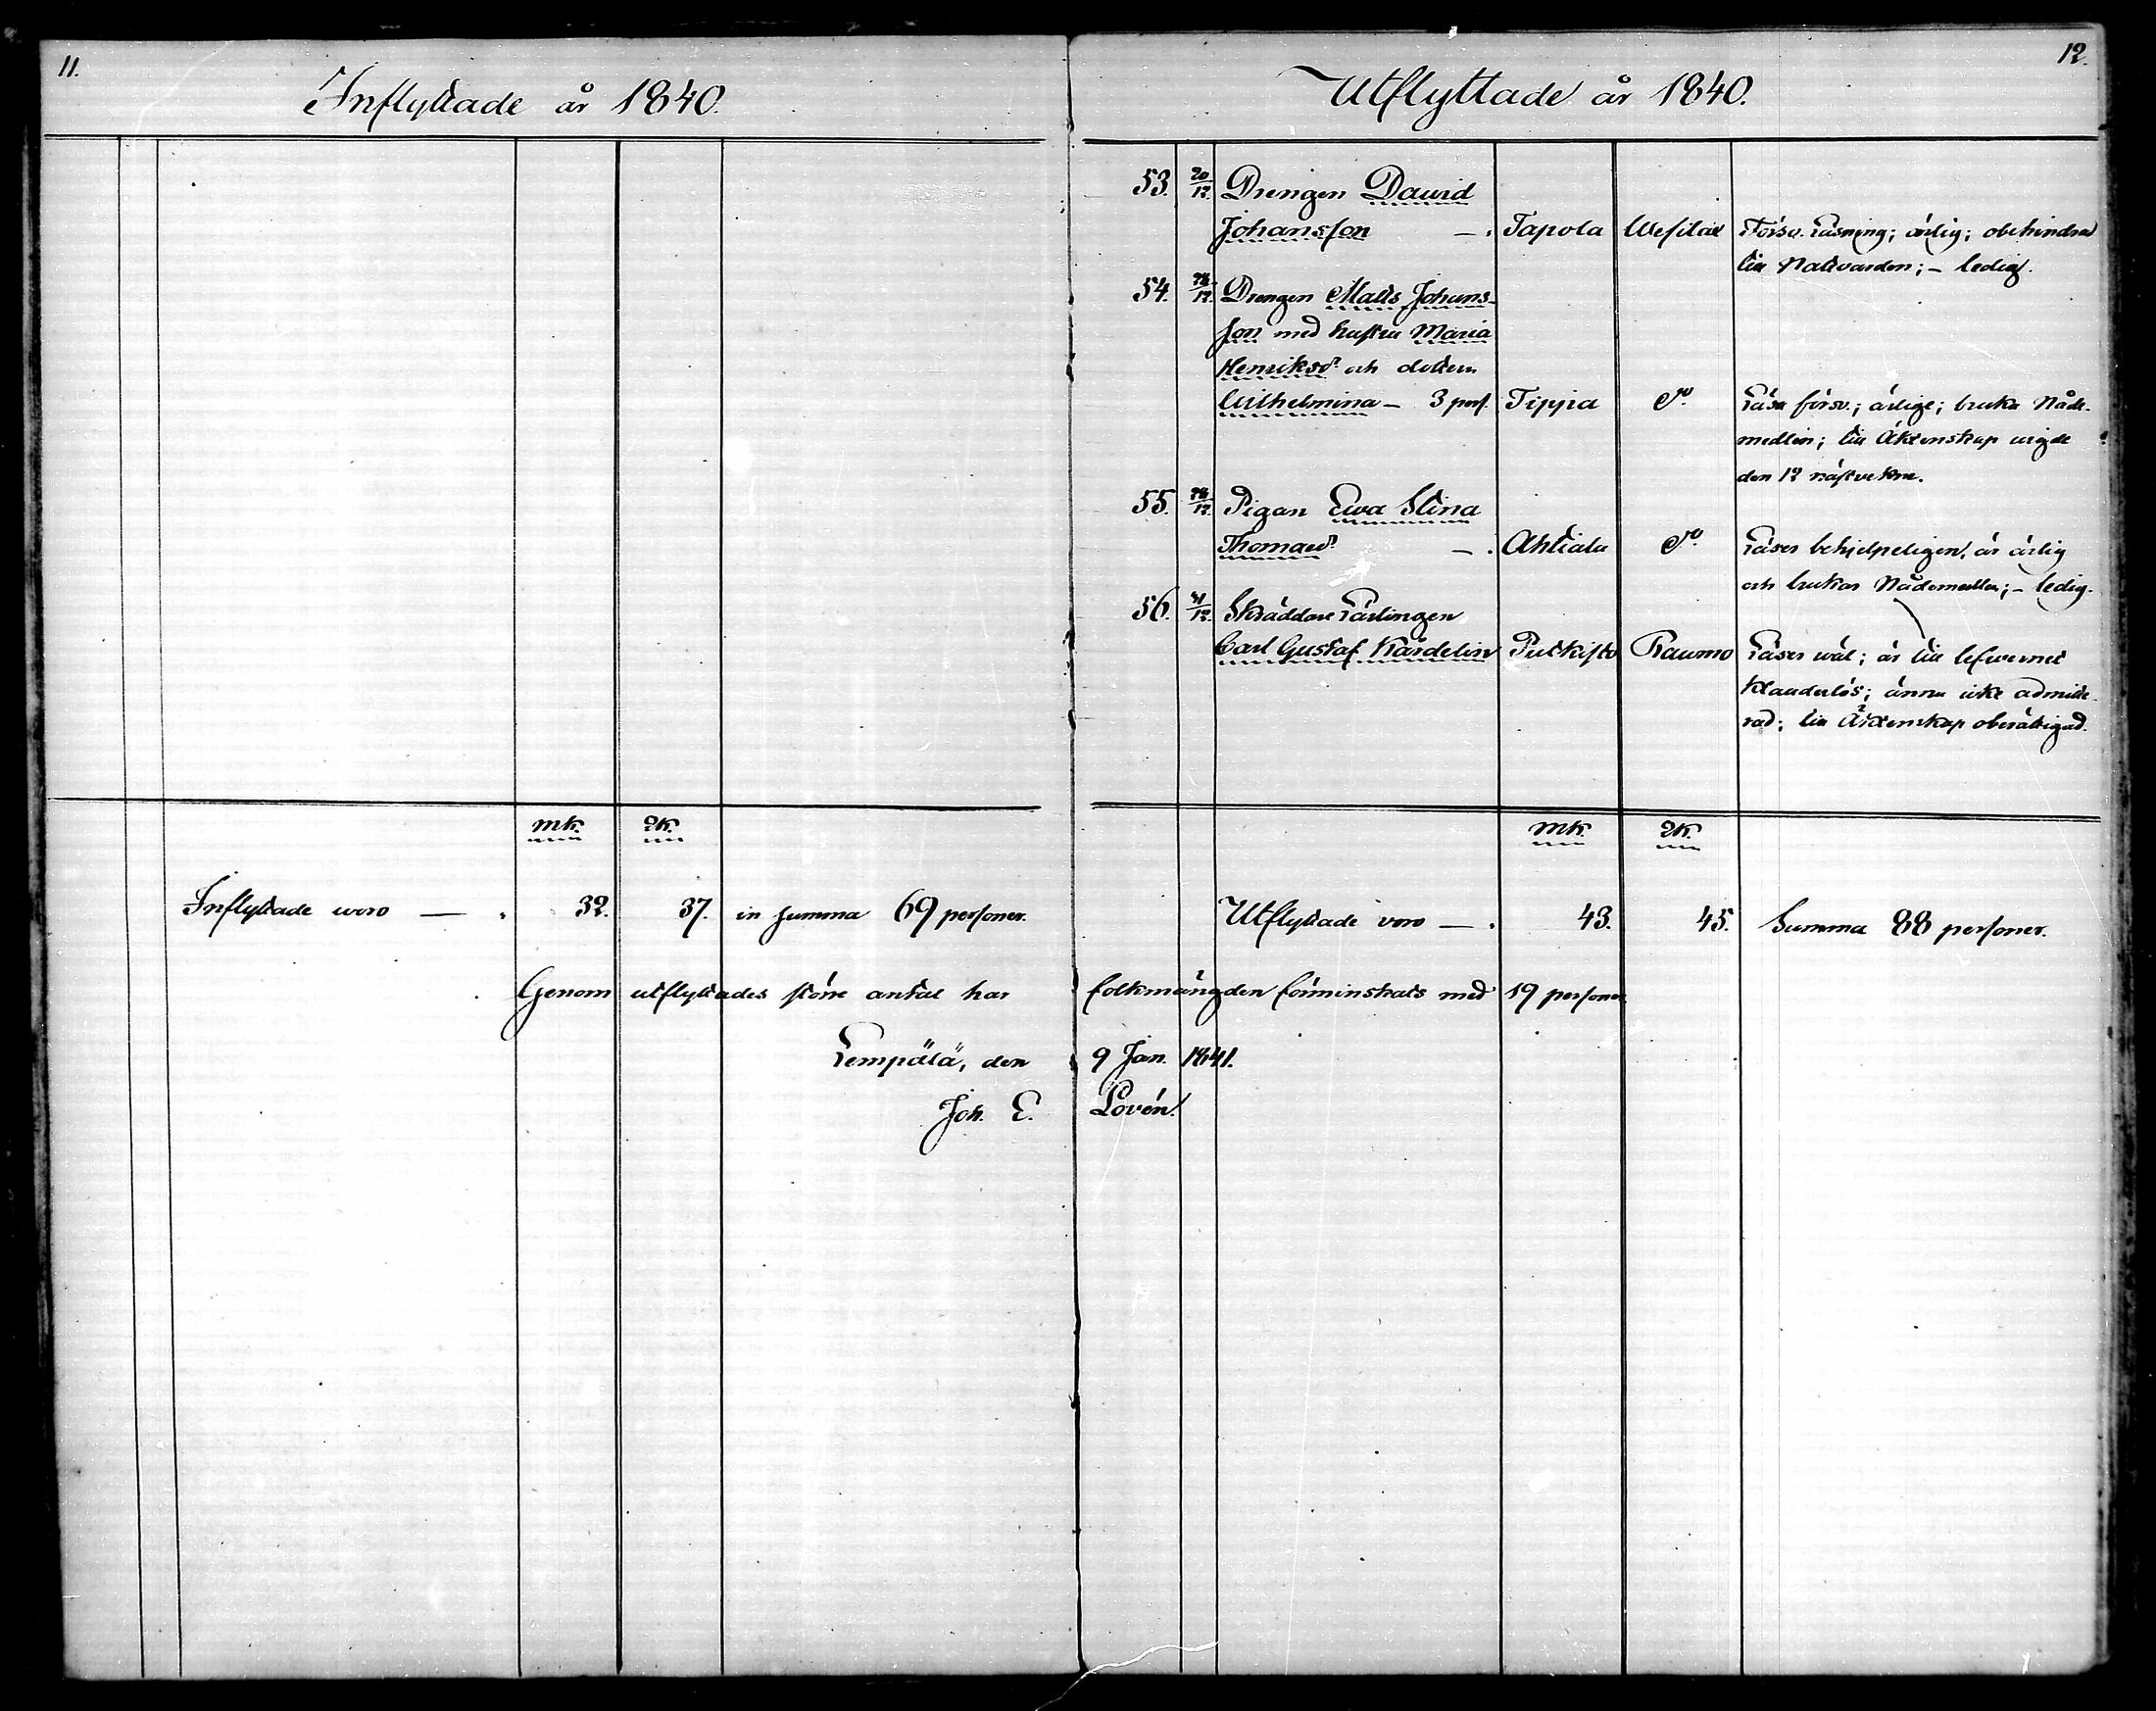 11.
Inflyttade år 1840.
mk. qk.
Inflyttade woro — . 32. 37. in summa 69 personer.
12.
Utflyttade år 1840.
53. 20/12. Drengen Dawid
Johansson —. Tapola Wesilax Försv. läsning; ärlig; obehindrad
till Nattvarden; – ledig.
54. Drengen Matts Johans-
son med hustru Maria
Henriksdr och dottern
Wilhelmina – 3 pers. Tippia do. Läsa försv.; ärlige; bruka Nåde-
medlen; till Äktenskap wigde
den 12
55. Pigan Ewa Stina
Thomasdr —. Ahtiala do. Läser behjelpeligen, är ärlig
och brukar Nådemedlen; – ledig.
56. 31/12. Skräddare Lärlingen
Carl Gustaf Kårdelin Putkisto Raumo Läser wäl; är till lefwernet
klanderlös; ännu icke admitte-
rad; till Äktenskap oberättigad.
mk. qk.
Utflyttade voro —. 43. 45. Summa 88 personer.
Genom utflyttades större antal har folkmängden förminskats med 19 personer
Lempälä, den 9 Jan. 1841.
Joh. E. Lovén.